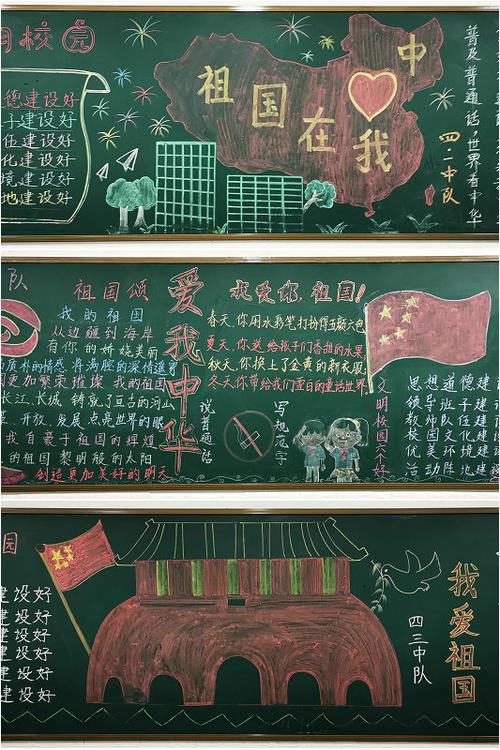 校园
德建设好
子建设好
伍建设好
化建设好
境建设好
地建设好
祖国在我❤中
普及普通话，世界看中华
四·二中队
队
祖国颂
我的祖国
从边疆到海岸
有你的娇娆美丽
质朴的情感 将满腔的深情道署
更加繁荣璀璨 我的祖国
长江、长城 铸就了亘古的河山
开放、发展 点亮世界的眼
我自豪于祖国的辉煌
的祖国 黎明般的太阳
创造更加美好的明天
爱我中华
说普通话
写规范字
我爱你，祖国！
春天，你用水彩笔打扮得五颜六色
夏天，你送给孩子们香甜的水果
秋天，你换上了金黄的新衣服
冬天，你带给我们雪白的童话世界
文明校园六个好
思想道德建
领导班子建
教师队伍建
校园文化建
优美环境建
活动阵地建
园
建设好
建设好
建设好
建设好
建设好
建设好
四三中队
我爱祖国